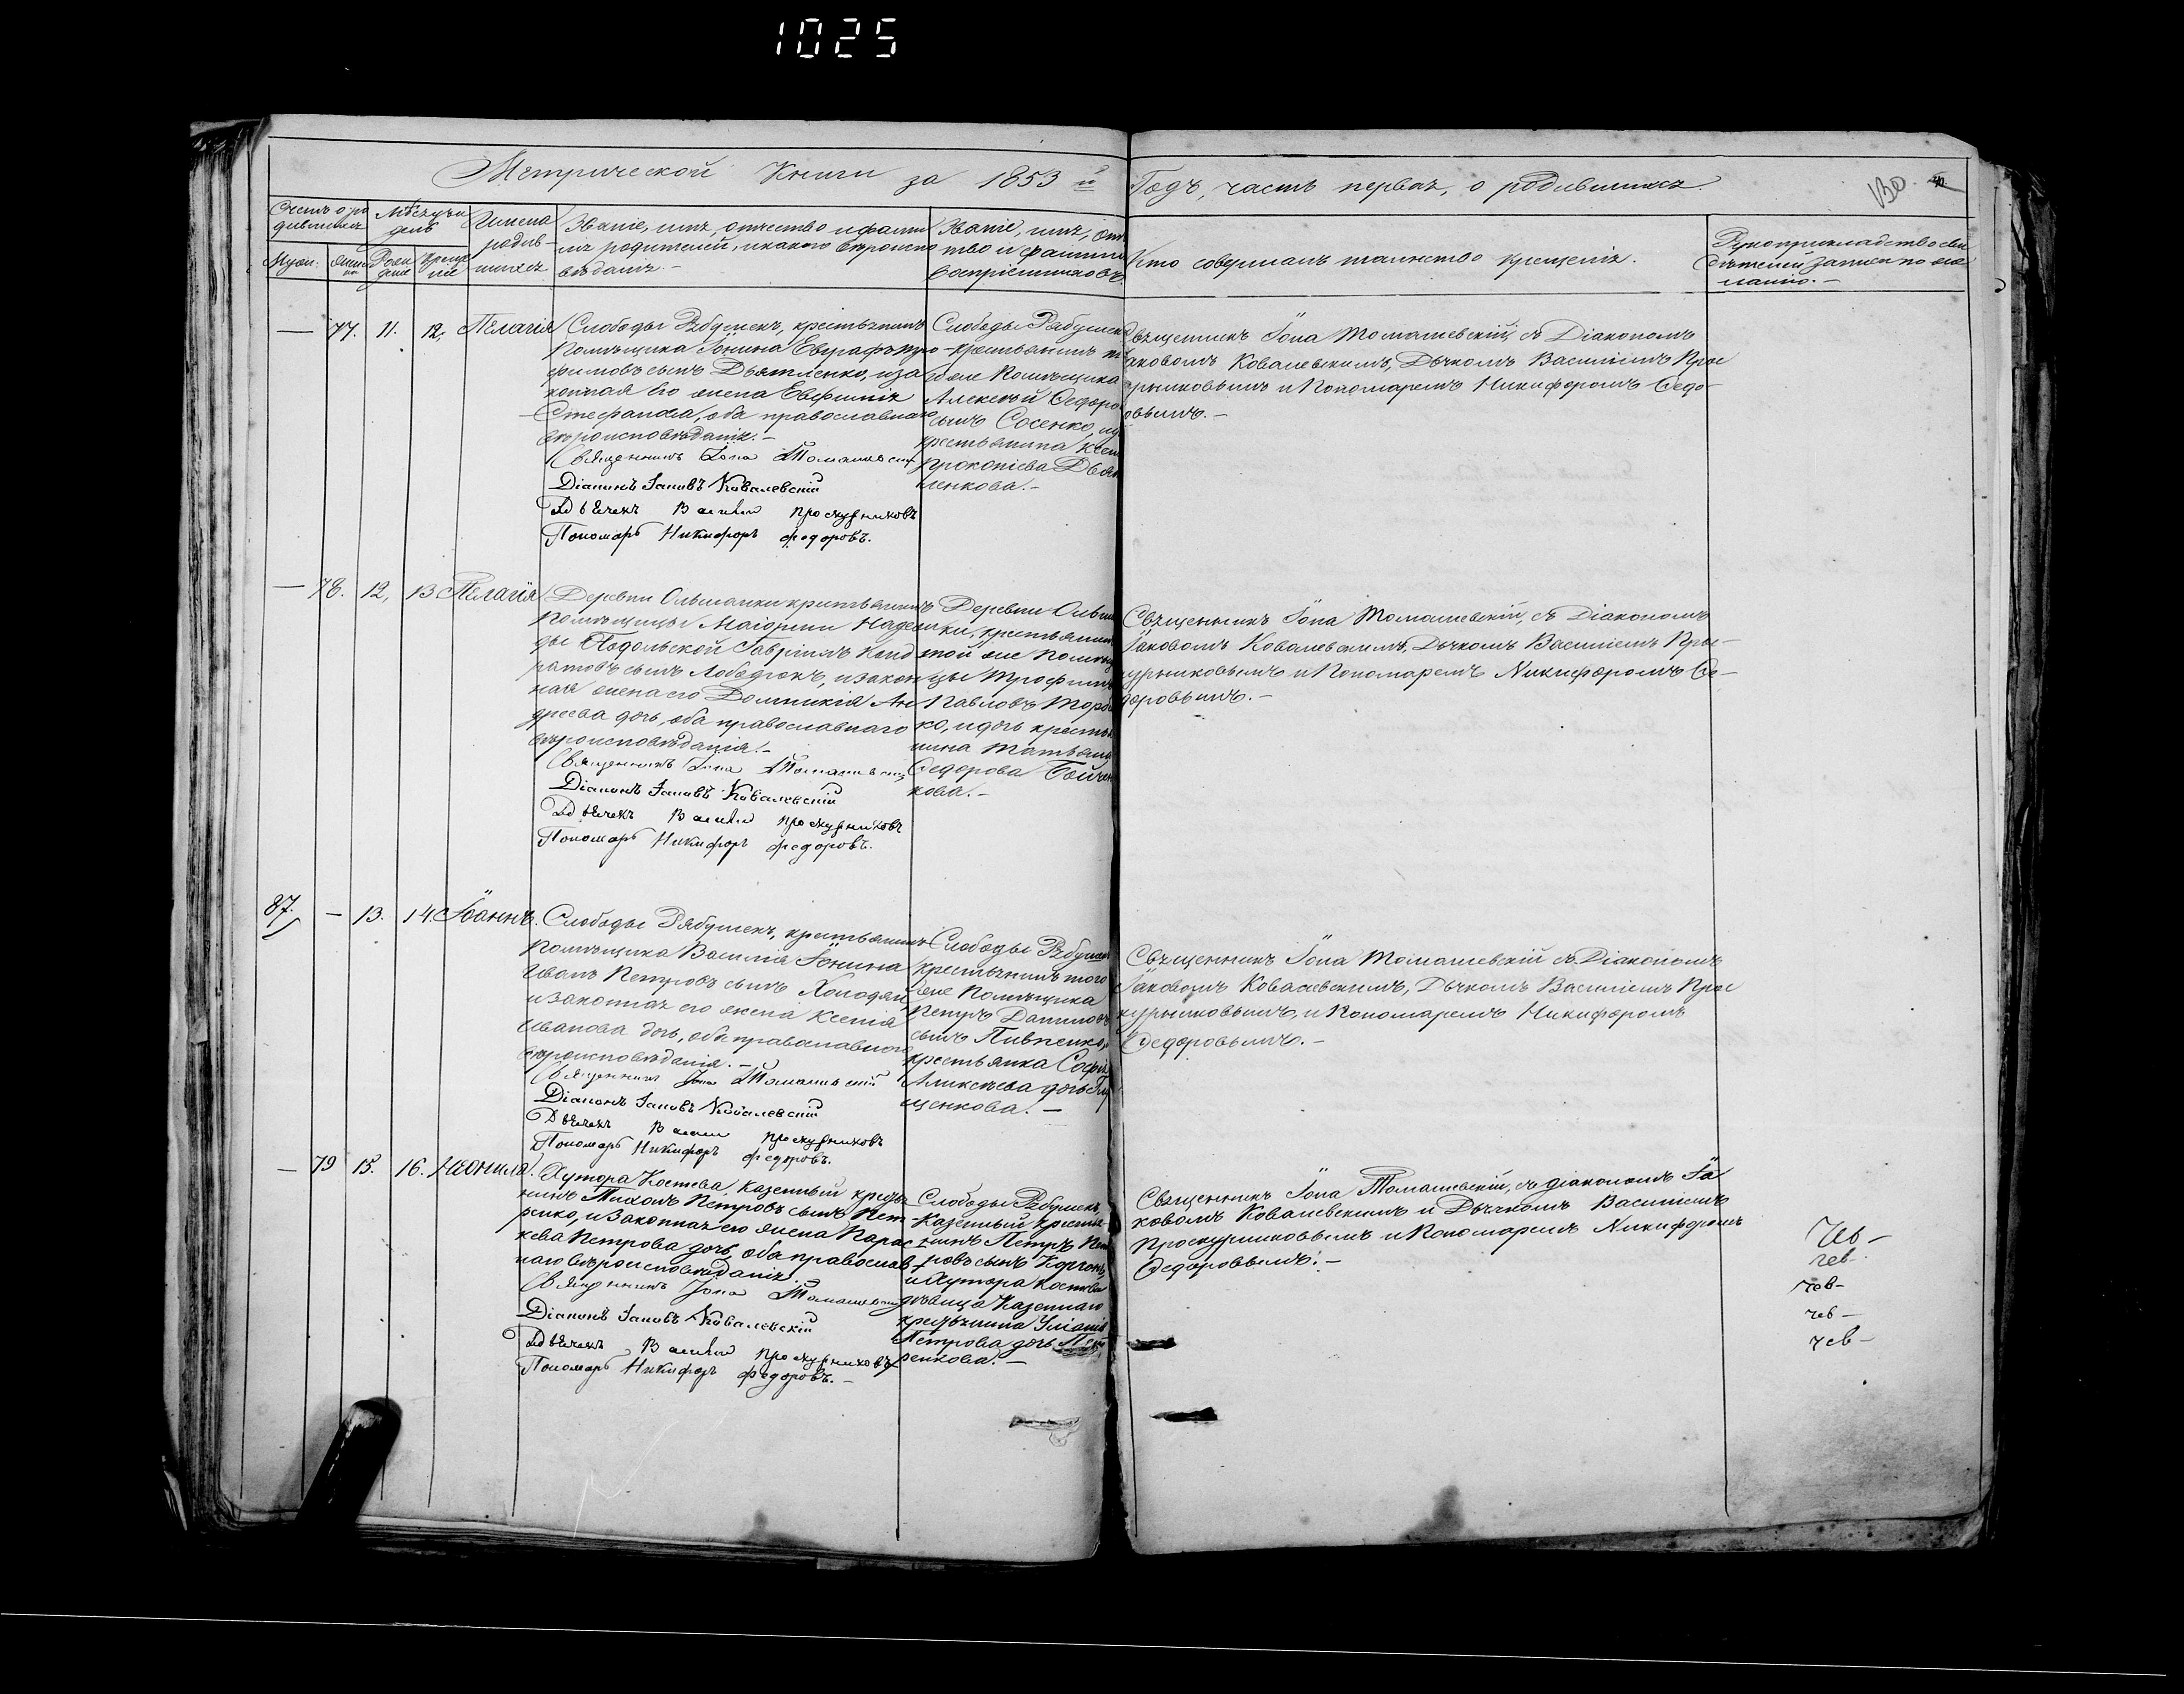 1025
Метрической Книги за 1853 й Годъ, часть первая, о родившихся.
130
Счетъ о ро
дившихся
Мѣсяцъ и
день
Имена
родив-
шихся
Званіе, имя, отчество и фами
лія родителей, и какого вѣроиспо
вѣданія. -
Званіе, имя, отче
тво и фамилія
воспріемниковъ.
Кто совершалъ таинство крещенія.
Рукоприкладство сви
дѣтелей записи по же
ланію. -
Муж.
Женс
ка
Рож
деніе
Креще
ніе
— 77. 11. 12, Пелагія
Слободы Рябушекъ, крестьянинъ
помѣщика Іонина Евграфъ Тро
фимовъ сынъ Дьятленко, и за
конная его жена Евфимія
Стефанова, оба православнаго
вѣроисповѣданія. -
Священникъ Іона Томашевск
Діаконъ Іаковъ Ковалевскій
Дьячекъ Василій Проскурниковъ
Пономарь Никифоръ Федоровъ.
Слободы Рябушекъ
крестьянинъ
же Помѣщика
Алексѣй Федоро
сынъ Сосенко, и
крестьянина
Прокопіева
ленкова. -
Священникъ Іона Томашевскій, съ Діакономъ
Іаковомъ Ковалевскимъ, Дьячкомъ Василіемъ Прос
курниковымъ и Пономаремъ Никифоромъ Федо-
ровымъ. -
— 78. 12, 13. Пелагія
Деревни Ольшанки крестьянинъ
помѣщицы Маіорши Надеж
ды Подольской Гавріилъ Конд
ратовъ сынъ Лободюкъ, и закон
ная жена его Домникія Ан
дреева дочь, оба православнаго
вѣроисповѣданія. -
Священникъ Іона Томашевскій
Діаконъ Іаковъ Ковалевскій
Дьячекъ Василій Проскурниковъ
Пономарь Никифоръ Федоровъ.
Деревни Ольша
нки, крестьянинъ
той же помѣщи
цы Трофимъ
Павловъ
ко, и дочь крестья
нина Татьяна
Федорова Бойчен
кова. -
Священникъ Іона Томашевскій, съ Діакономъ
Іаковомъ Ковалевскимъ, Дьячкомъ Василіемъ Прос-
курниковымъ и Пономаремъ Никифоромъ Фе-
доровымъ. -
87. — 13. 14. Іоаннъ.
Слободы Рябушекъ, крестьянинъ
Помѣщика Василія Іонина
Иванъ Петровъ сынъ Холодян
и законная его жена Ксенія
Иванова дочь, оба православнаго
вѣроисповѣданія. -
Священникъ Іона Томашевскій
Діаконъ Іаковъ Ковалевскій
Дьячекъ Василій Проскурниковъ
Пономарь Никифоръ Федоровъ.
Слободы Рябушекъ
крестьянинъ того
же Помѣщика
Петръ Даниловъ
сынъ Пивненко, и
крестьянка Софія
Алексѣева дочь
щенкова. -
Священникъ Іона Томашевскій съ Діакономъ
Іаковомъ Ковалевскимъ, Дьячкомъ Василіемъ Прос
курниковымъ, и Пономаремъ Никифоромъ
Федоровымъ. -
— 79 15. 16. Неонила.
Хутора Костева, Казенный кресть
нинъ Тихонъ Петровъ сынъ Пет
ренко, и законная его жена Парас
кева Петрова дочь, оба православ
наго вѣроисповѣданія.
Священникъ Іона Томашевскій
Діаконъ Іаковъ Ковалевскій
Дьячекъ Василій Проскурниковъ
Пономарь Никифоръ Федоровъ. -
Слободы Рябушекъ,
Казенный крестья
нинъ Петръ Пет
ровъ сынъ Коргонъ,
и Хутора Костева
дѣвица Казеннаго
крестьянина Уліанія
Петрова дочь Пет
ренкова. -
Священникъ Іона Томашевскій, съ діакономъ Іа
ковомъ Ковалевскимъ и Дьячкомъ Василіемъ
Проскурниковымъ и Пономаремъ Никифоромъ
Федоровымъ. -
Чев -
чев -
чев -
чев -
чев -